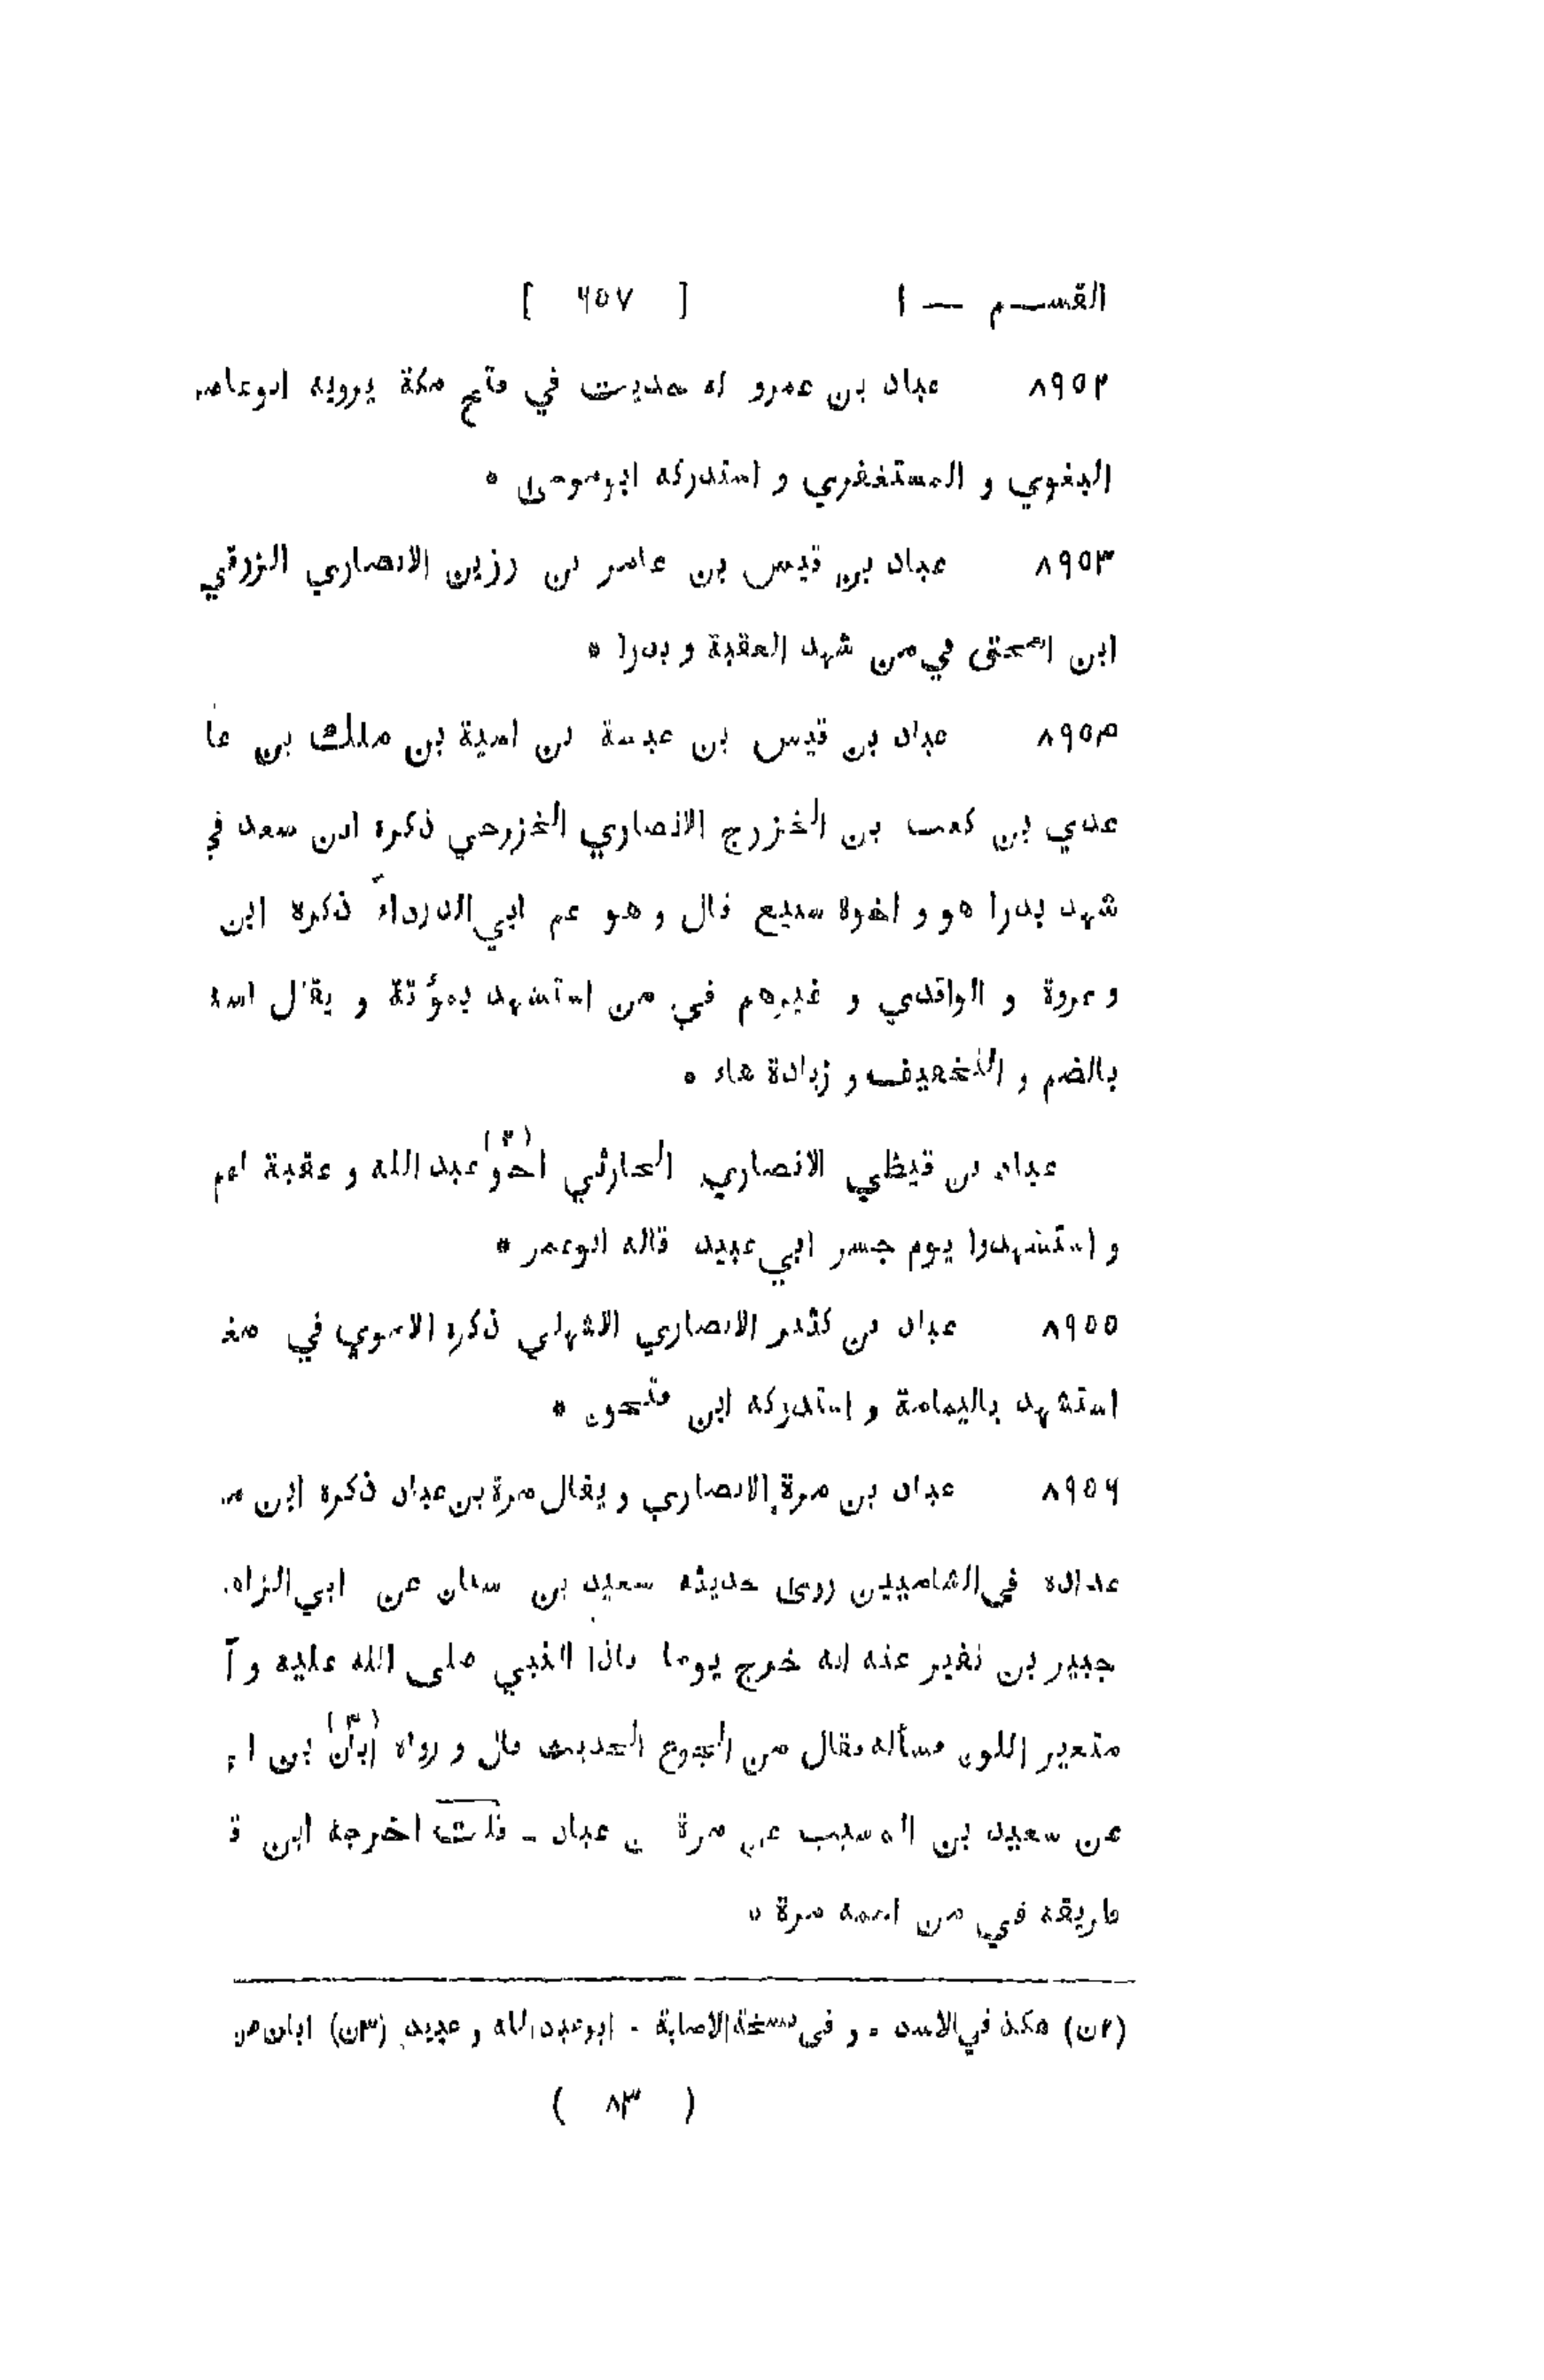 القسم — ١ [ ٦٥٧ ]
٨٩٥٢ عباد بن عمرو له حديث في فتح مكة يرويه ابوعاصم
البغوي و المستغفري و استدركه ابوموسى *
٨٩٥٣ عباد بن قيس بن عامر بن رزين الانصاري الزرقي
ابن اسحق في من شهد العقبة و بدرا *
٨٩٥٤ عباد بن قيس بن عبسة بن امية بن ملك بن عا
عدي بن كعب بن الخزرج الانصاري الخزرجي ذكره ابن سعد في
شهد بدرا هو و اخوه سبيع قال و هو عم ابي الدرداء ذكره ابن
و عروة و الواقدي و غيرهم في من استشهد بمؤتة و يقال
بالضم و التخفيف و زيادة هاء *
عباد بن قيظي الانصاري الحارثي اخو (٢) عبد الله و عقبة
و استشهدوا يوم جسر ابي عبيد قاله ابوعمر *
٨٩٥٥ عباد بن كثير الانصاري الاشهلي ذكره الاموي في مغ
استشهد باليمامة و استدركه ابن فتحون *
٨٩٥٦ عباد بن مرة الانصاري و يقال مرة بن عباد ذكره ابن
عداده في الشاميين روى حديثه سعيد بن سنان عن ابي الزاه
جبير بن نفير عنه انه خرج يوما فاذا النبي صلى الله عليه و آ
متغير اللون فسأله فقال من الجوع الحديث قال و رواه ابان (٣) بن
عن سعيد بن المسيب عن مرة بن عباد - قلت اخرجه ابن ق
طريقه في من اسمه مرة *
(٢ن) هكذ في الاسد - و في نسخة الاصابة - ابوعبد الله و عبيد (٣ن) ابان من
( ٨٣ )